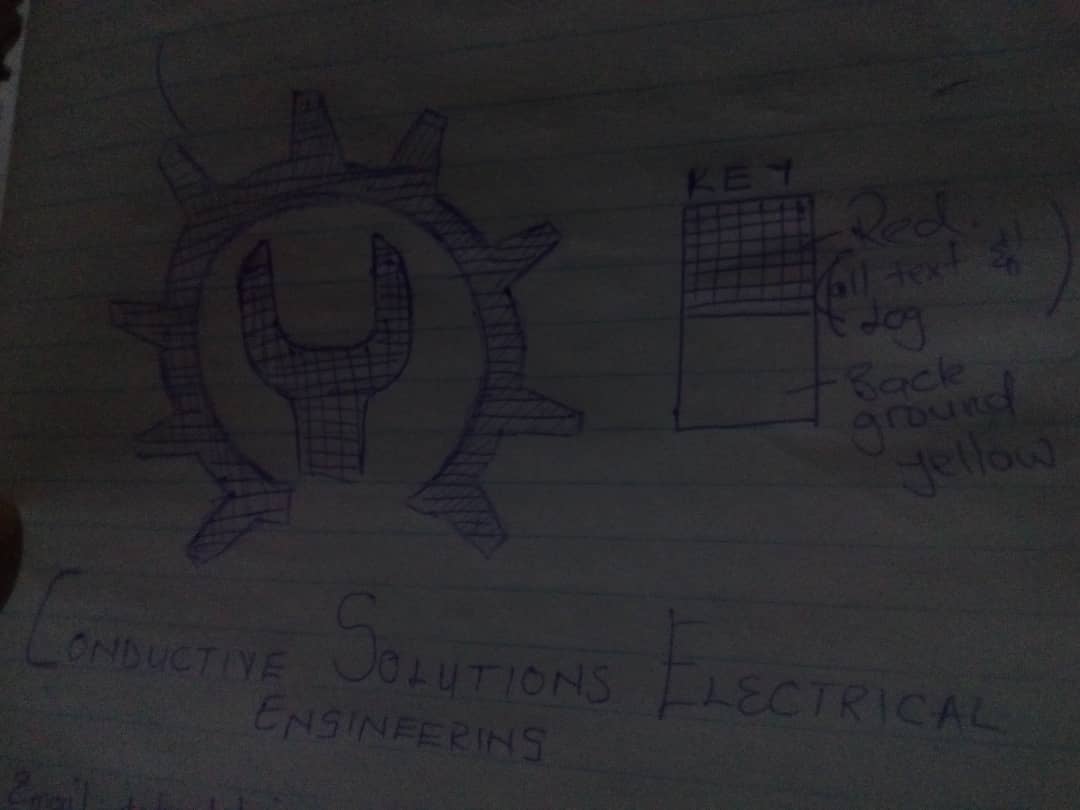 KEY
Red.
(all text &
log
)
Back
ground
yellow
CONDUCTIVE SOLUTIONS ELECTRICAL
ENGINEERING
Email